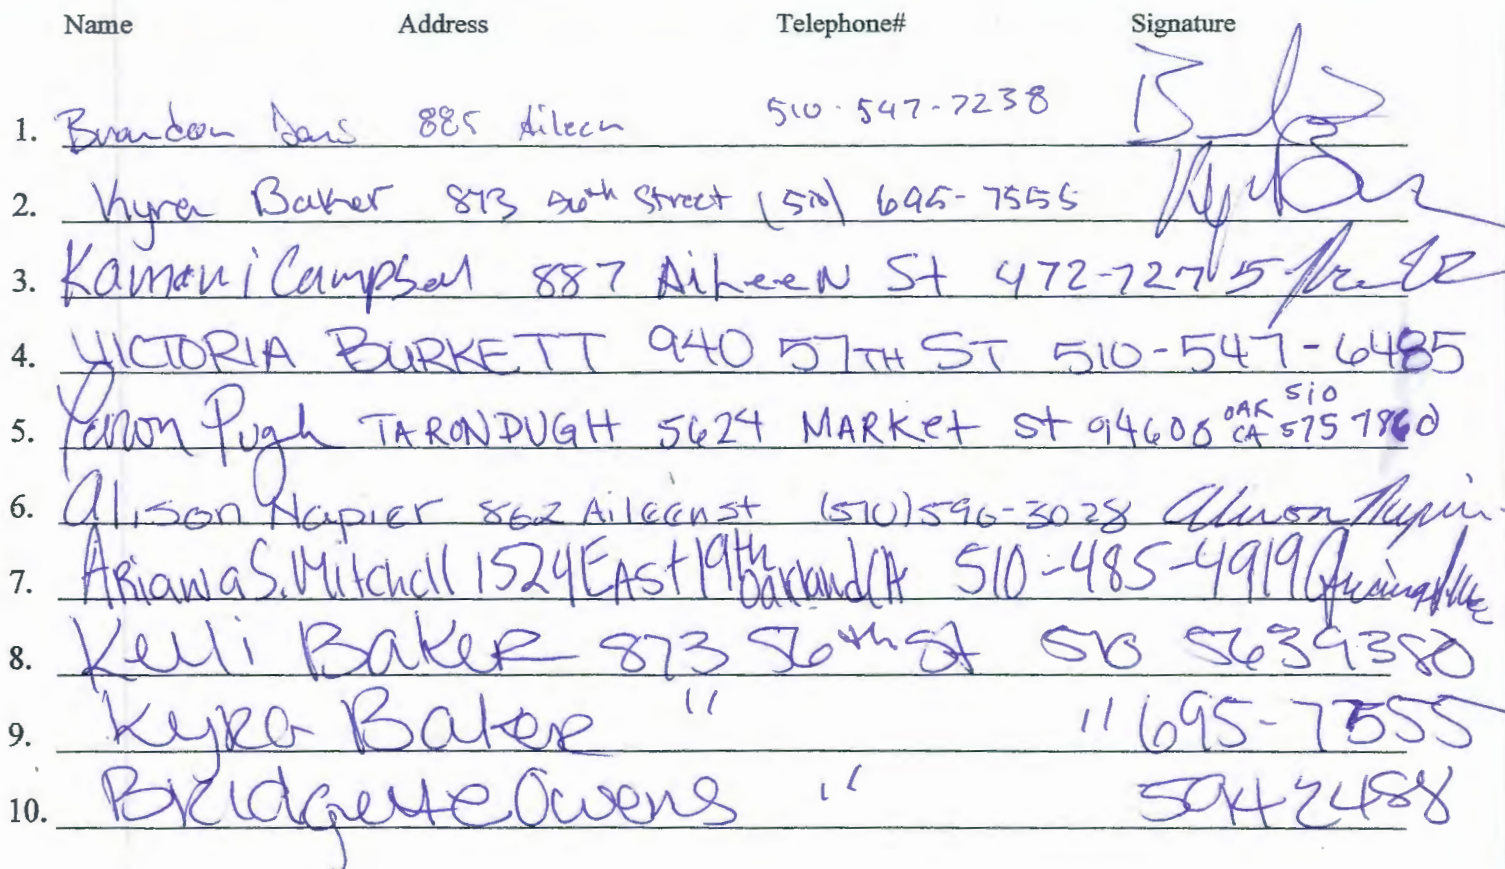 Name Address Telephone# Signature
1. Brandon Davis 885 Aileen 510-547-7238
2. Kyra Baker 873 56th Street (510) 695-7555
3. Kamani Campbell 887 AiLeeN St 472-7275
4. VICTORIA BURKETT 940 57TH ST 510-547-6485
5. Taron Pugh TARON PUGH 5624 MARKet St 94608 OAK CA 510 575 7860
6. Alison Napier 862 Aileen st (510) 596-3028 Alison Napier
7. Ariana S. Mitchell 1524 EAST 19th Oakland CA 510-485-4919
8. Kelli BaKeR 873 56th St 510 5639380
9. KyRa BaKeR " " 695-7555
10. Bridgette Owens " 5942488